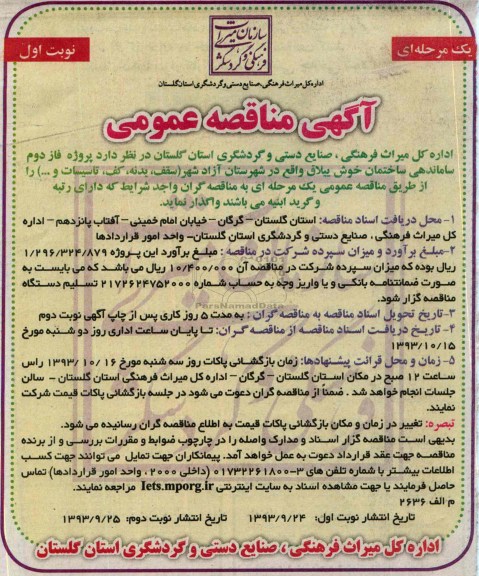 سازمان میراث
فرهنگی و گردشگری
یک مرحله ای
نوبت اول
اداره کل میراث فرهنگی، صنایع دستی و گردشگری استان گلستان
آگهی مناقصه عمومی
اداره کل میراث فرهنگی ، صنایع دستی و گردشگری استان گلستان در نظر دارد پروژه فاز دوم
ساماندهی ساختمان خوش ییلاق واقع در شهرستان آزاد شهر(سقف، بدنه، کف، تاسیسات و ...) را
از طریق مناقصه عمومی یک مرحله ای به مناقصه گران واجد شرایط که دارای رتبه
و گرید ابنیه می باشند واگذار نماید.
۱- محل دریافت اسناد مناقصه: استان گلستان – گرگان – خیابان امام خمینی – آفتاب پانزدهم – اداره
کل میراث فرهنگی ، صنایع دستی و گردشگری استان گلستان- واحد امور قراردادها
۲-مبلغ برآورد و میزان سپرده شرکت در مناقصه : مبلغ برآورد این پروژه ۱/۲۹۶/۳۲۴/۸۷۹
ریال بوده که میزان سپرده شرکت در مناقصه آن ۱۰/۴۰۰/۰۰۰ ریال می باشد که می بایست به
صورت ضمانتنامه بانکی و یا واریز وجه به حساب شماره ۲۱۷۲۶۲۴۷۵۲۰۰۰ تسلیم دستگاه
مناقصه گزار شود.
۳-تاریخ تحویل اسناد مناقصه به مناقصه گران : به مدت ۵ روز کاری پس از چاپ آگهی نوبت دوم
۴-تاریخ دریافت اسناد مناقصه از مناقصه گران: تا پایان ساعت اداری روز دو شنبه مورخ
۱۳۹۳/۱۰/۱۵
۵- زمان و محل قرائت پیشنهادها: زمان بازگشائی پاکات روز سه شنبه مورخ ۱۳۹۳/۱۰/۱۶ راس
ساعت ۱۲ صبح در مکان استان گلستان – گرگان – اداره کل میراث فرهنگی استان گلستان – سالن
جلسات انجام خواهد شد . ضمنا از مناقصه گران دعوت می شود در جلسه بازگشائی پاکات قیمت شرکت
نمایند.
تبصره: تغییر در زمان و مکان بازگشائی پاکات قیمت به اطلاع مناقصه گران رسانیده می شود.
بدیهی است مناقصه گزار اسناد و مدارک واصله را در چارچوب ضوابط و مقررات بررسی و از برنده
مناقصه جهت عقد قرارداد دعوت به عمل خواهد آمد. پیمانکاران جهت تمایل می توانند جهت کسب
اطلاعات بیشتر با شماره تلفن های ۳-۰۱۷۳۲۲۶۱۸۰۰ (داخلی ۲۰۰۰ ، واحد امور قراردادها) تماس
حاصل فرمایند یا جهت مشاهده اسناد به سایت اینترنتی Iets.mporg.ir مراجعه نمایند.
م الف ۲۶۳۶
تاریخ انتشار نوبت اول: ۱۳۹۳/۹/۲۴ تاریخ انتشار نوبت دوم: ۱۳۹۳/۹/۲۵
اداره کل میراث فرهنگی ، صنایع دستی و گردشگری استان گلستان